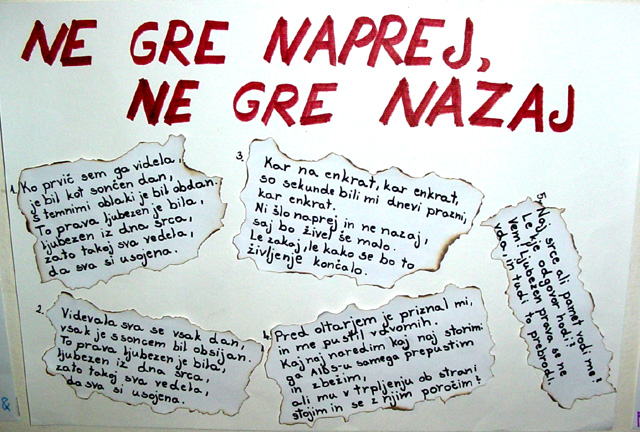 NE GRE NAPREJ,
NE GRE NAZAJ
1. Ko prvič sem ga videla,
je bil kot sončen dan,
s temnimi oblaki je bil obdan.
To prava ljubezen je bila,
ljubezen iz dna srca,
zato takoj sva vedela,
da sva si usojena.
2. Videvala sva se vsak dan,
vsak je s soncem bil obsijan.
To prava ljubezen je bila,
ljubezen iz dna srca,
zato takoj sva vedela,
da sva si usojena.
3. Kar na enkrat, kar enkrat,
so sekunde bili mi dnevi prazni,
kar enkrat.
Ni šlo naprej in ne nazaj,
saj bo živel še malo.
Le zakaj, le kako se bo to
življenje končalo.
4. Pred oltarjem je priznal mi,
in me pustil v dvomih.
Kaj naj naredim kaj naj storim:
ga AIDS-u samega prepustim
in zbežim,
ali mu v trpljenju ob strani
stojim in se z njim poročim?
5. Naj srce ali pamet vodi me!
Le kje odgovor hodi?
Vem: Ljubezen prava se ne
vda, in tudi to prebrodi.
&